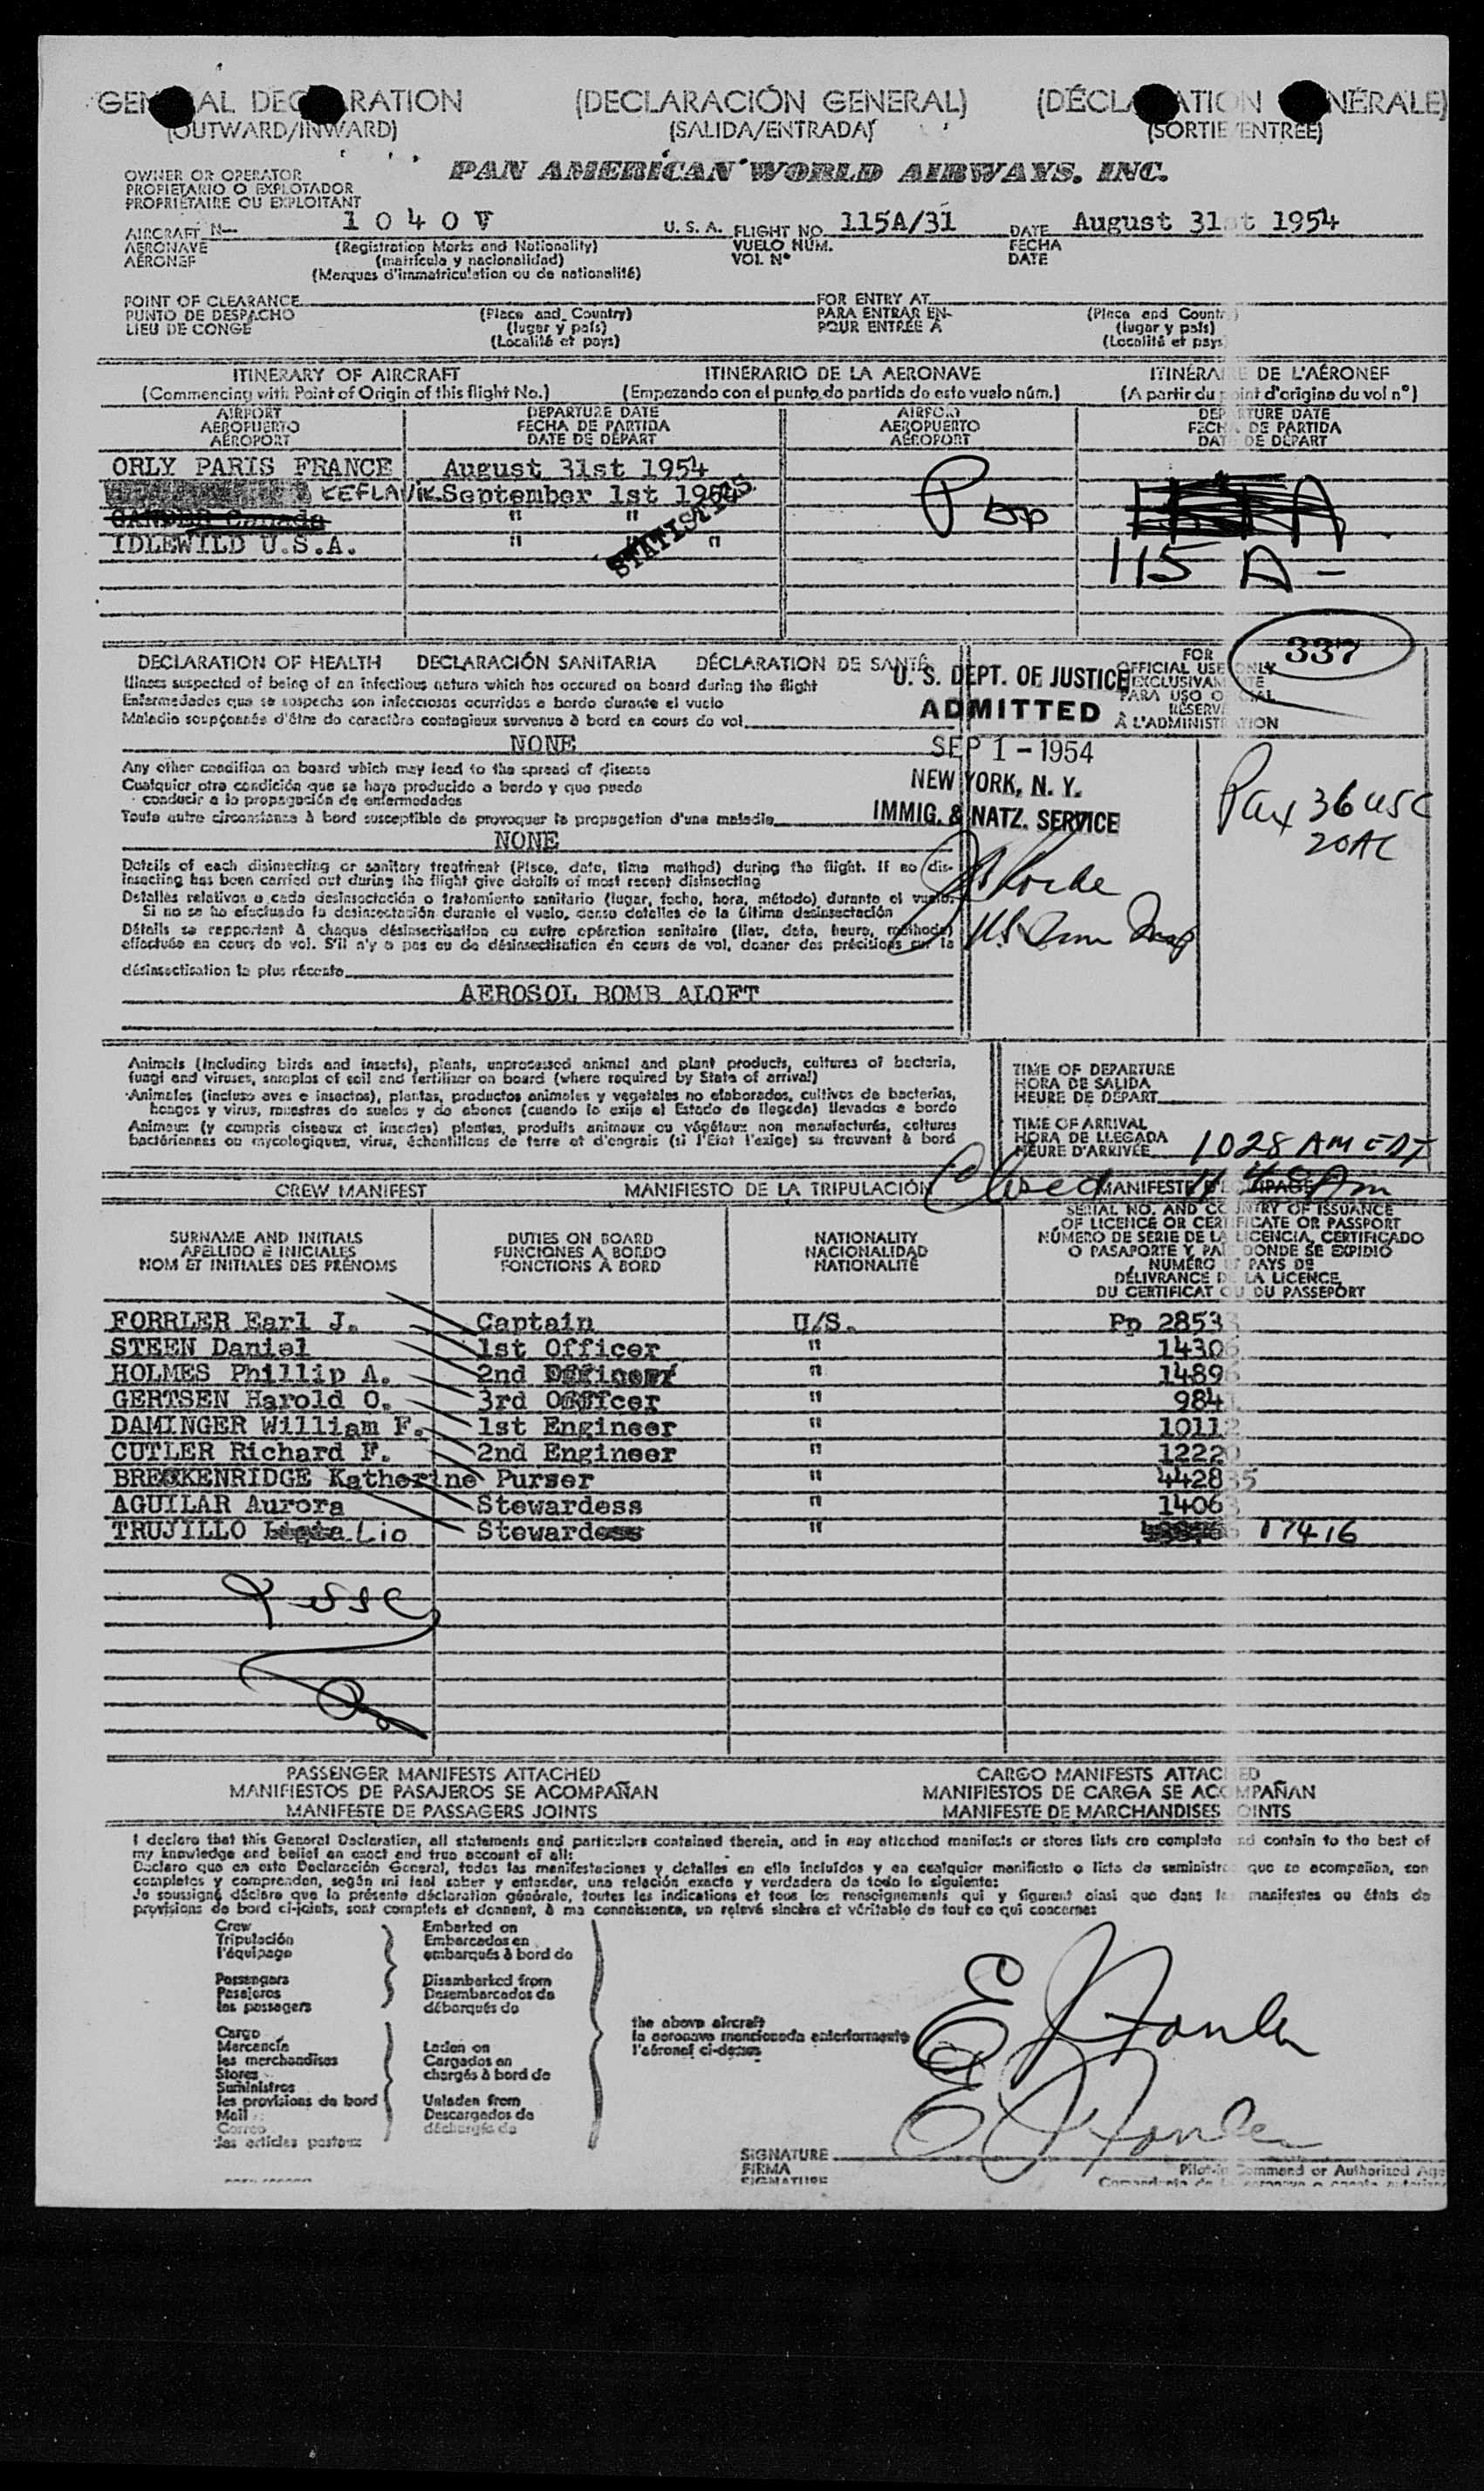 GENERAL DECLARATION (DECLARACIÓN GENERAL) (DÉCLARATION GÉNÉRALE)
(OUTWARD/INWARD) (SALIDA/ENTRADA) (SORTIE/ENTRÉE)
PAN AMERICAN WORLD AIRWAYS, INC.
OWNER OR OPERATOR
PROPIETARIO O EXPLOTADOR
PROPRIÉTAIRE OU EXPLOITANT
AIRCRAFT N- 1040V U. S. A. FLIGHT NO. 115A/31 DATE August 31st 1954
AERONAVE (Registration Marks and Nationality) VUELO NÚM. FECHA
AÉRONEF (matrícula y nacionalidad) VOL Nº DATE
(Marques d'immatriculation ou de nationalité)
POINT OF CLEARANCE FOR ENTRY AT
PUNTO DE DESPACHO (Place and Country) PARA ENTRAR EN (Place and Country)
LIEU DE CONGÉ (lugar y país) POUR ENTRÉE À (lugar y país)
(Localité et pays) (Localité et pays)
ITINERARY OF AIRCRAFT ITINERARIO DE LA AERONAVE ITINÉRAIRE DE L'AÉRONEF
(Commencing with Point of Origin of this flight No.) (Empezando con el punto de partida de este vuelo núm.) (A partir du point d'origine du vol nº)
AIRPORT DEPARTURE DATE AIRPORT DEPARTURE DATE
AEROPUERTO FECHA DE PARTIDA AEROPUERTO FECHA DE PARTIDA
AÉROPORT DATE DE DÉPART AÉROPORT DATE DE DÉPART
ORLY PARIS FRANCE August 31st 1954
KEFLAVIK September 1st 1954
GANDER Canada " "
IDLEWILD U.S.A. " " "
STATISTICS
115 A -
337
DECLARATION OF HEALTH DECLARACIÓN SANITARIA DÉCLARATION DE SANTÉ
Illness suspected of being of an infectious nature which has occured on board during the flight
Enfermedades que se sospecha son infecciosas ocurridas a bordo durante el vuelo
Maladie soupçonnée d'être de caractère contagieux survenue à bord en cours de vol
NONE
FOR
OFFICIAL USE ONLY
EXCLUSIVAMENTE
PARA USO OFICIAL
RÉSERVÉ
À L'ADMINISTRATION
U. S. DEPT. OF JUSTICE
ADMITTED
SEP 1 - 1954
NEW YORK, N. Y.
IMMIG. & NATZ. SERVICE
Pax 36 USC
20 AC
Any other condition on board which may lead to the spread of disease
Cualquier otra condición que se haya producido a bordo y que pueda
conducir a la propagación de enfermedades
Toute autre circonstance à bord susceptible de provoquer la propagation d'une maladie
NONE
Details of each disinsecting or sanitary treatment (Place, date, time method) during the flight. If no dis-
insecting has been carried out during the flight give details of most recent disinsecting
Detalles relativos a cada desinsectación o tratamiento sanitario (lugar, fecha, hora, método) durante el vuelo.
Si no se ha efectuado la desinsectación durante el vuelo, dense detalles de la última desinsectación
Détails se rapportant à chaque désinsectisation ou autre opération sanitaire (lieu, date, heure, méthode)
effectuée en cours de vol. S'il n'y a pas eu de désinsectisation en cours de vol, donner des précisions sur la
désinsectisation la plus récente
AEROSOL BOMB ALOFT
Animals (including birds and insects), plants, unprocessed animal and plant products, cultures of bacteria,
fungi and viruses, samples of soil and fertilizer on board (where required by State of arrival)
Animales (incluso aves e insectos), plantas, productos animales y vegetales no elaborados, cultivos de bacterias,
hongos y virus, muestras de suelos y de abonos (cuando lo exija el Estado de llegada) llevados a bordo
Animaux (y compris oiseaux et insectes) plantes, produits animaux ou végétaux non manufacturés, cultures
bactériennes ou mycologiques, virus, échantillons de terre et d'engrais (si l'État l'exige) se trouvant à bord
TIME OF DEPARTURE
HORA DE SALIDA
HEURE DE DÉPART
TIME OF ARRIVAL
HORA DE LLEGADA
HEURE D'ARRIVÉE 1028 AM EDT
Closed 11 40 Am
CREW MANIFEST MANIFIESTO DE LA TRIPULACIÓN MANIFESTE D'ÉQUIPAGE
SURNAME AND INITIALS DUTIES ON BOARD NATIONALITY
APELLIDO E INICIALES FUNCIONES A BORDO NACIONALIDAD
NOM ET INITIALES DES PRÉNOMS FONCTIONS À BORD NATIONALITÉ
SERIAL NO. AND COUNTRY OF ISSUANCE
OF LICENCE OR CERTIFICATE OR PASSPORT
NÚMERO DE SERIE DE LA LICENCIA, CERTIFICADO
O PASAPORTE Y PAÍS DONDE SE EXPIDIÓ
NUMÉRO ET PAYS DE
DÉLIVRANCE DE LA LICENCE,
DU CERTIFICAT OU DU PASSEPORT
FORRLER Earl J. Captain U/S. Pp 2853
STEEN Daniel 1st Officer " 1430
HOLMES Phillip A. 2nd " 1489
GERTSEN Harold O. 3rd Officer " 984
DAMINGER William F. 1st Engineer " 10112
CUTLER Richard F. 2nd Engineer " 12220
BRECKENRIDGE Katherine Purser " 442835
AGUILAR Aurora Stewardess " 1406
TRUJILLO Lio Stewardess " 17416
9 USC
PASSENGER MANIFESTS ATTACHED CARGO MANIFESTS ATTACHED
MANIFIESTOS DE PASAJEROS SE ACOMPAÑAN MANIFIESTOS DE CARGA SE ACOMPAÑAN
MANIFESTE DE PASSAGERS JOINTS MANIFESTE DE MARCHANDISES JOINTS
I declare that this General Declaration, all statements and particulars contained therein, and in any attached manifests or stores lists are complete and contain to the best of
my knowledge and belief an exact and true account of all:
Declaro que en esta Declaración General, todas las manifestaciones y detalles en ella incluídos y en cualquier manifiesto o lista de suministros que se acompañan, son
completos y comprenden, según mi leal saber y entender, una relación exacta y verdadera de todo lo siguiente:
Je soussigné déclare que la présente déclaration générale, toutes les indications et tous les renseignements qui y figurent ainsi que dans les manifestes ou états de
provisions de bord ci-joints, sont complets et donnent, à ma connaissance, un relevé sincère et véritable de tout ce qui concerne:
Crew Embarked on
Tripulación Embarcados en
l'équipage embarqués à bord de
Passengers Disembarked from
Pasajeros Desembarcados de
les passagers débarqués de
the above aircraft
la aeronave mencionada anteriormente
l'aéronef ci-dessus
Cargo
Mercancía Laden on
les merchandises Cargados en
Stores chargés à bord de
Suministros
les provisions de bord Unladen from
Mail Descargados de
Correo déchargés de
les articles postaux
SIGNATURE
FIRMA
SIGNATURE
Pilot-in Command or Authorized Age